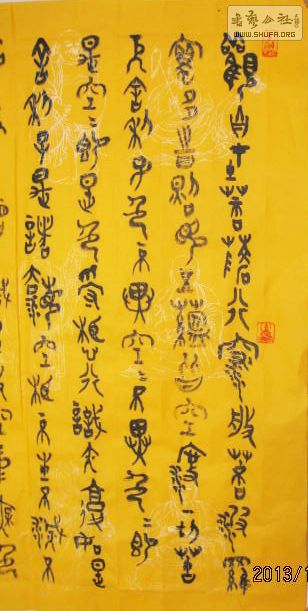 书艺公社
WWW.SHUFA.ORG
觀自在菩薩行深般若波羅
蜜多時照見五蘊皆空度一切苦
厄舍利子色不異空〻不異色〻即
是空〻即是色受想行識亦復如是
舍利子是諸法空相不生不滅不
2013/1